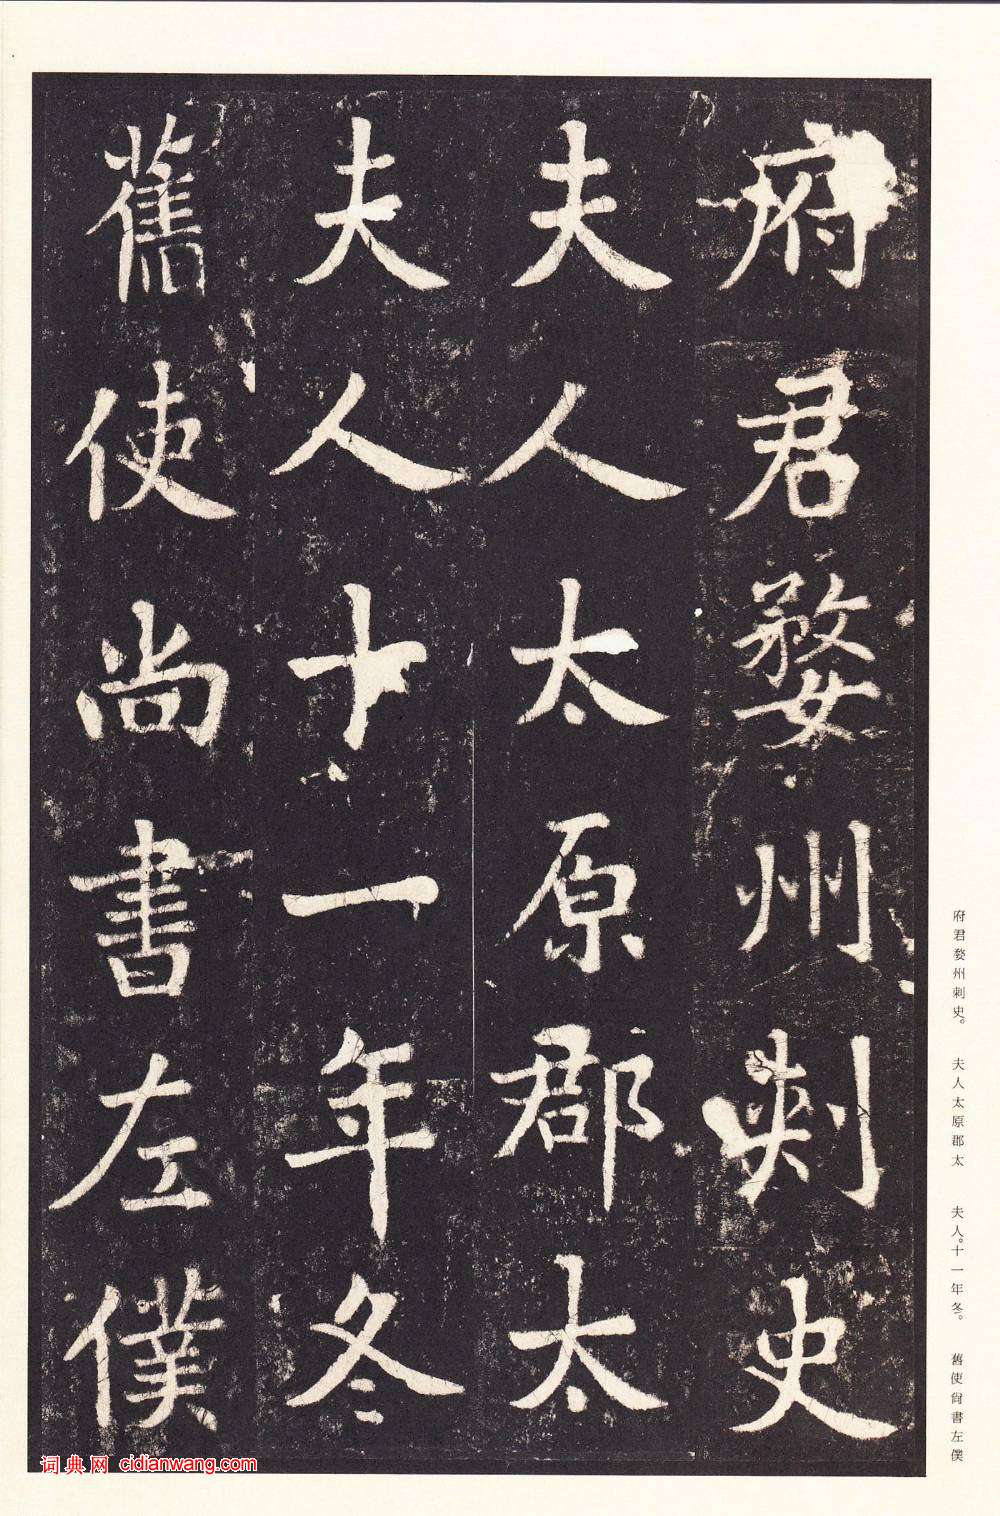 府君婺州刺史
夫人太原郡太
夫人十一年冬
舊使尚書左僕
府君婺州刺史。 夫人太原郡太 夫人。十一年冬。 舊使尙書左僕
词典网 cidianwang.com